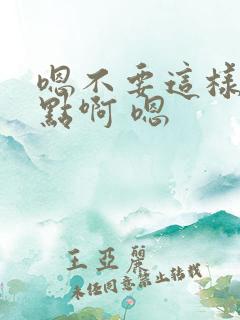 嗯不要這樣
點啊 嗯
王亞麗
未经同意禁止转载